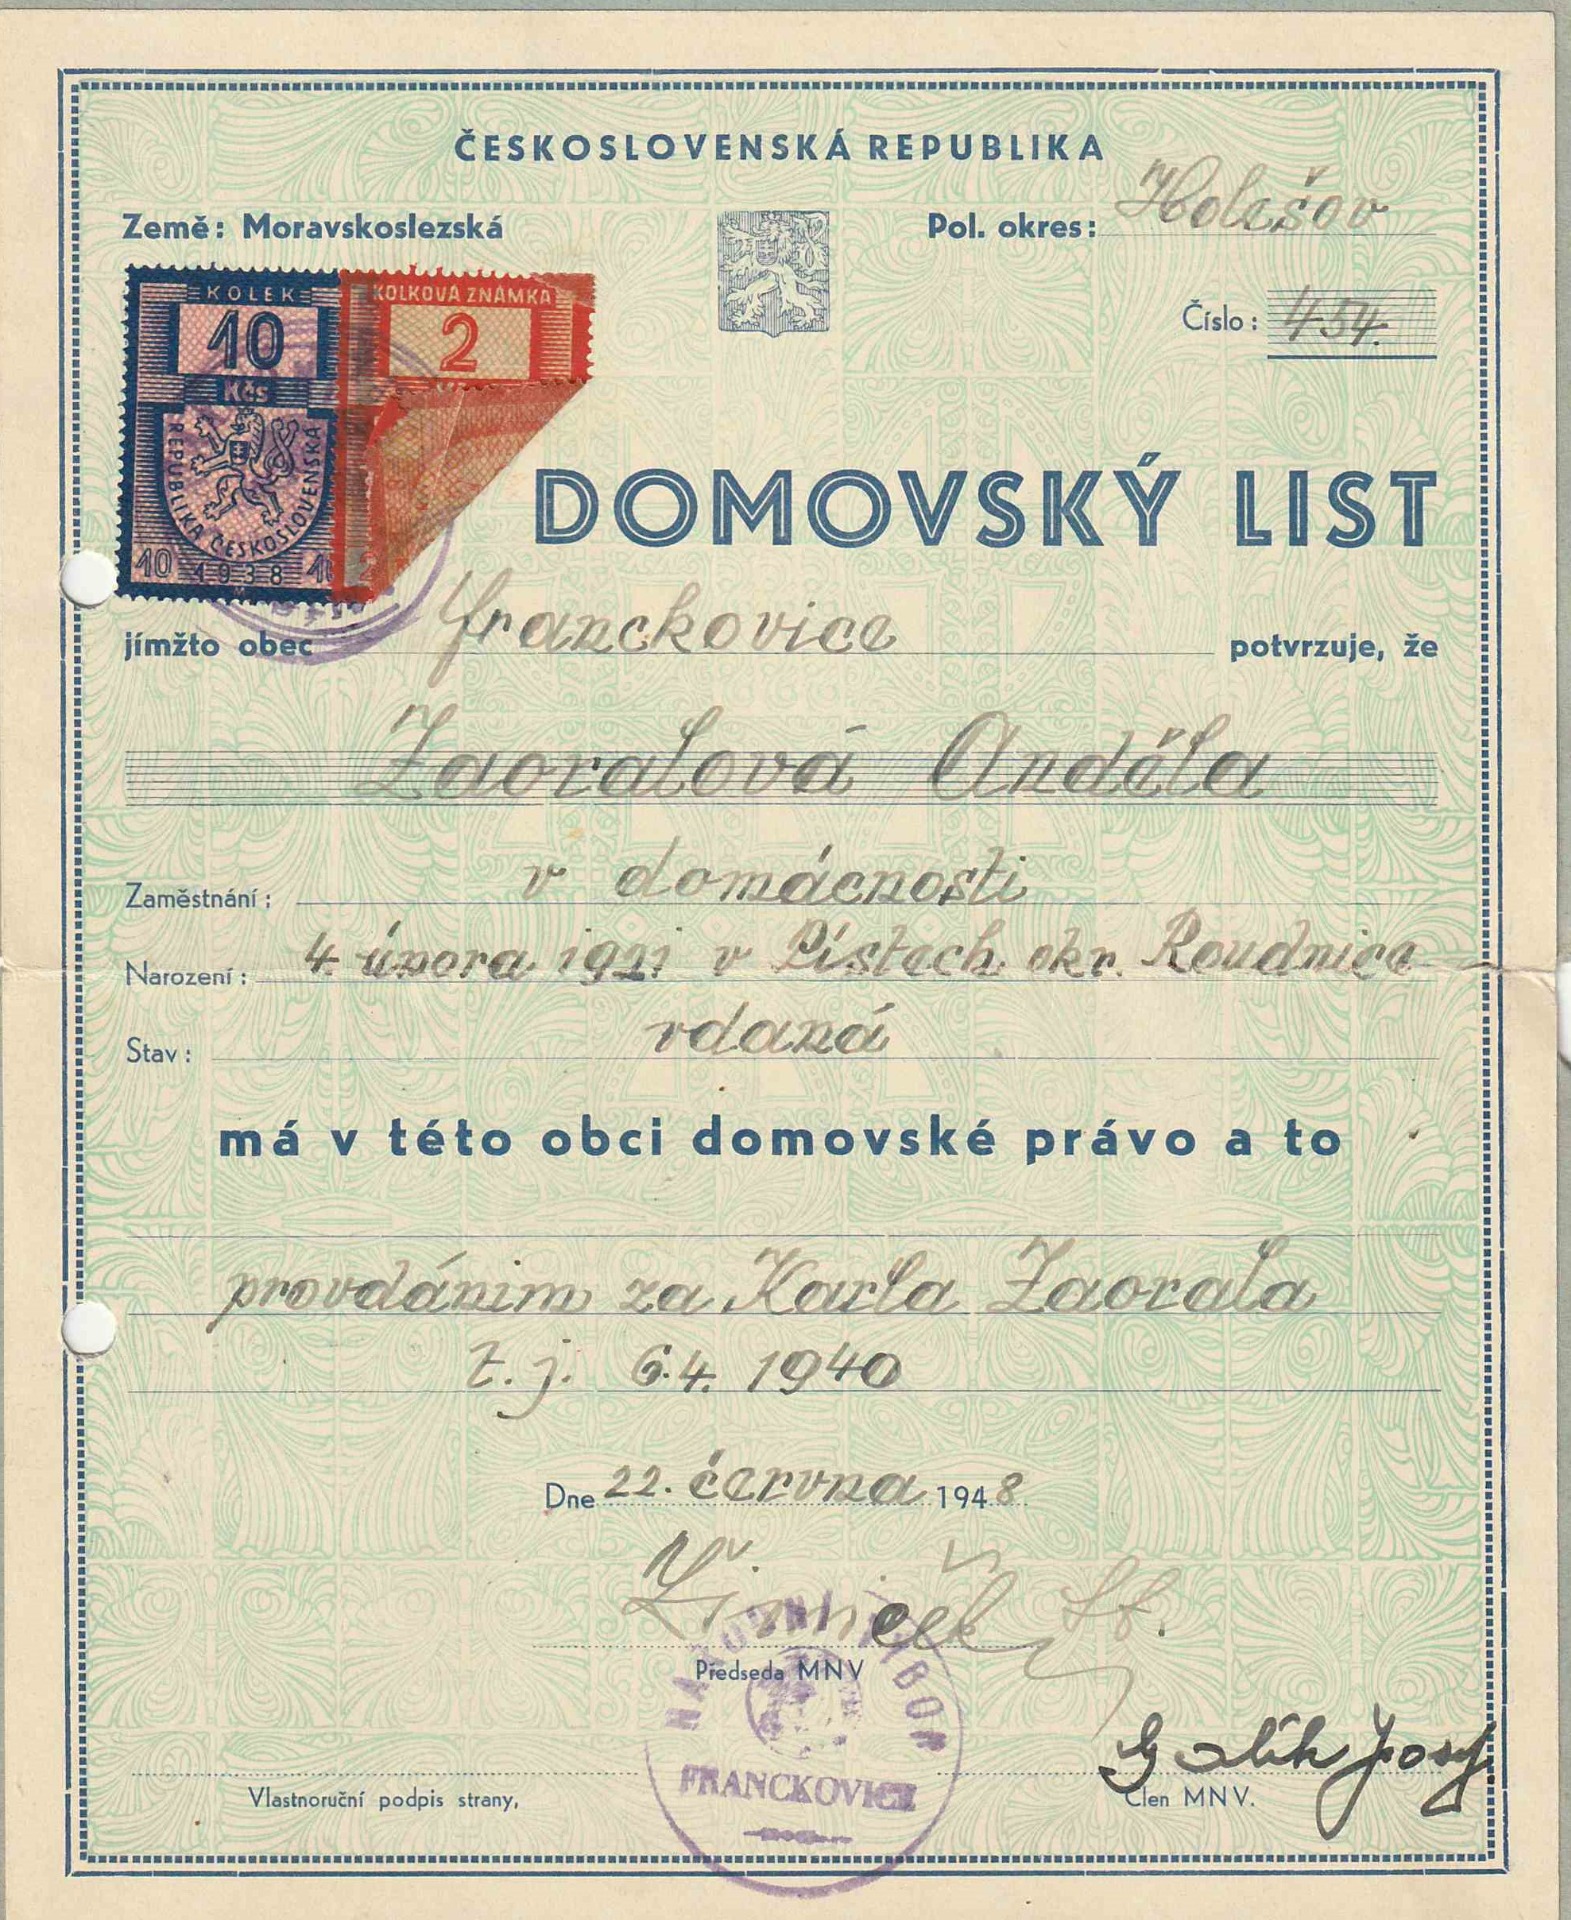 ČESKOSLOVENSKÁ REPUBLIKA
Země: Moravskoslezská
Pol. okres: Holešov
Číslo: 454.
KOLEK
10
Kčs
REPUBLIKA ČESKOSLOVENSKÁ
10 1938 10
KOLKOVÁ ZNÁMKA
2
2
DOMOVSKÝ LIST
jímžto obec Franckovice potvrzuje, že
Zaoralová Anděla
Zaměstnání: v domácnosti
Narození: 4. února 1921 v Pístech okr. Roudnice
Stav: vdaná
má v této obci domovské právo a to
provdáním za Karla Zaorala
t.j. 6.4. 1940
Dne 22. června 1948
Předseda MNV
NÁRODNÍ VÝBOR
FRANCKOVICE
Galík Josef
Vlastnoruční podpis strany,
Člen MNV.